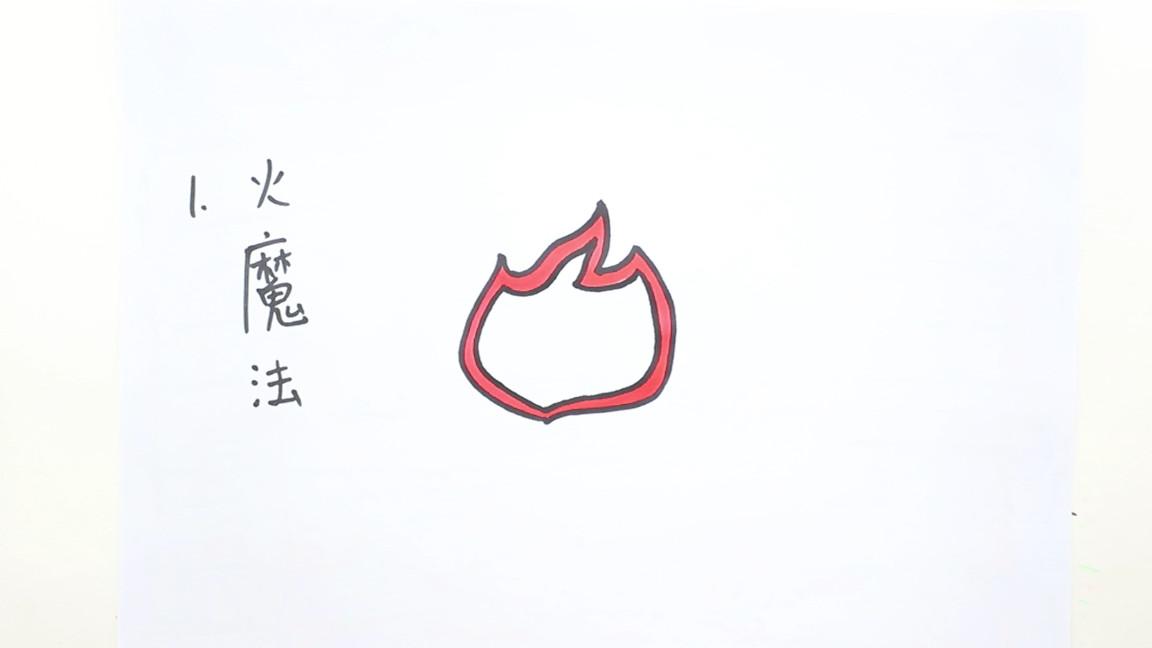 1. 火魔法